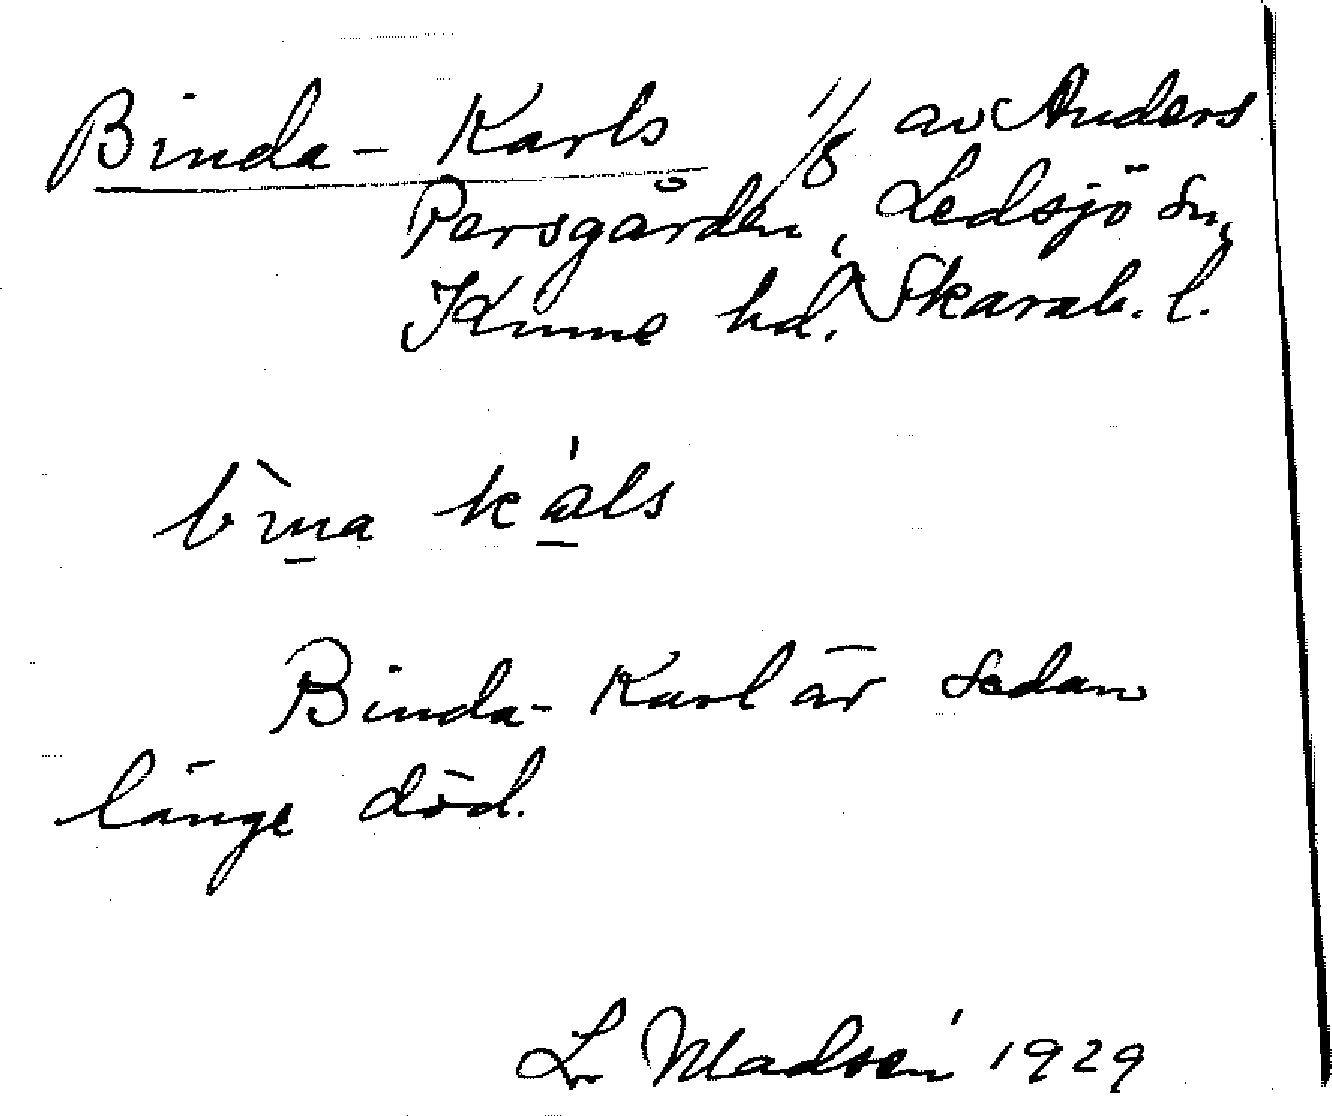 Binda-Karls 1/8 av Anders
Persgården, Ledsjö sn,
Kinne hd. Skarab. l.
b̀ına káls
Binda-Karl är sedan
länge död.
L Madsén 1929